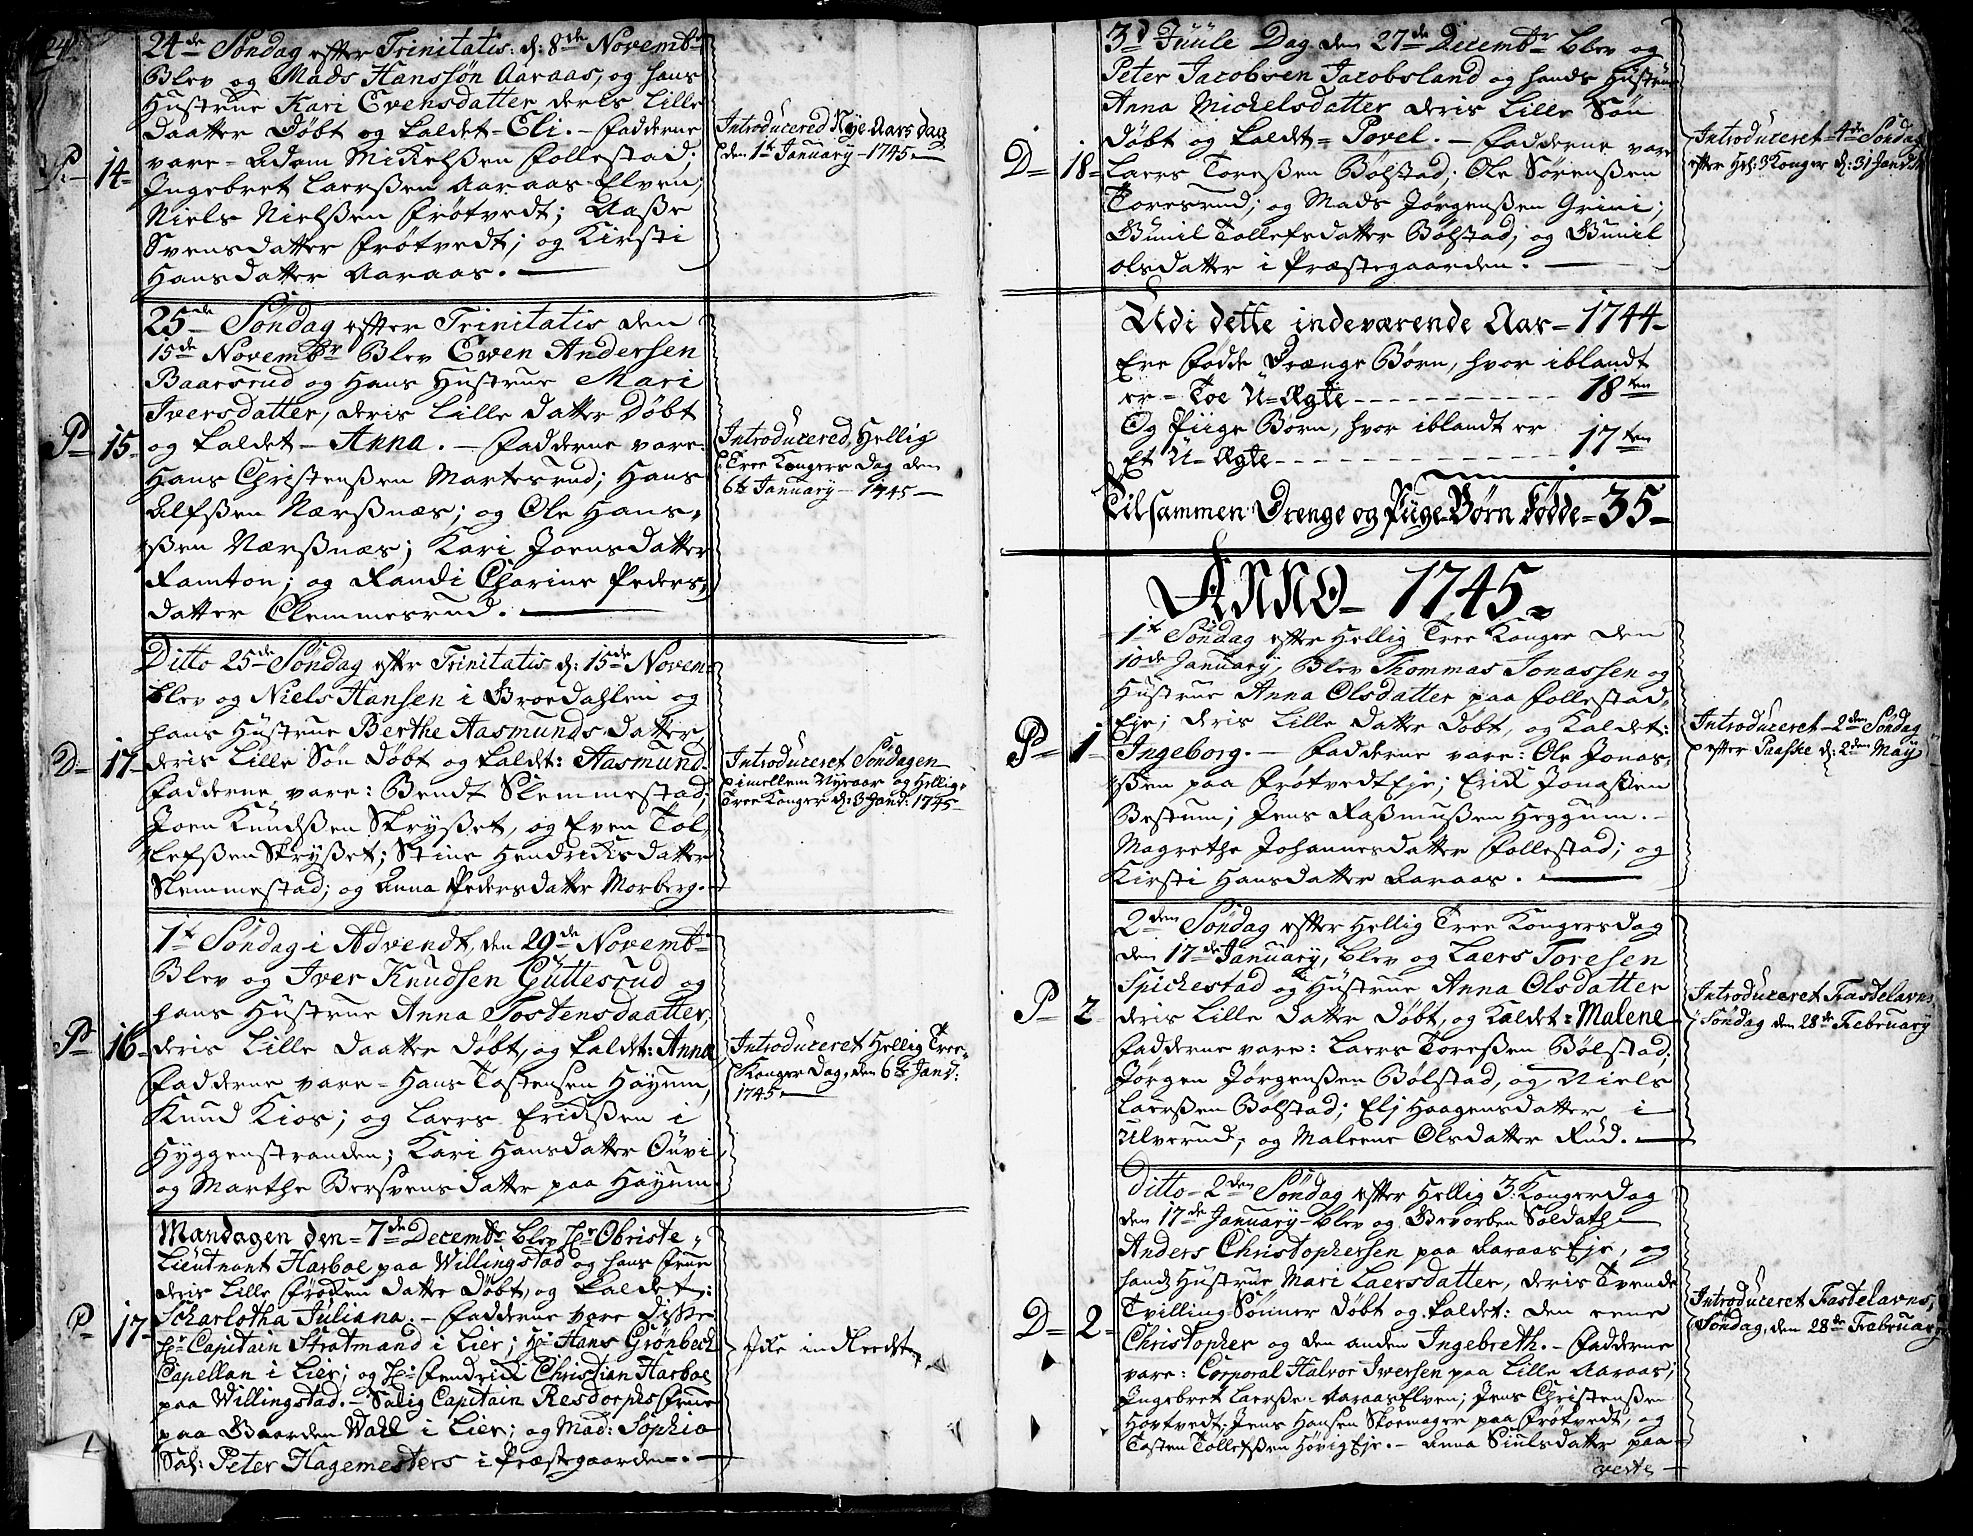 24de Søndag efter Trinitatis. d: 8de Novembr
Blev og Mads Hanssøn Aaraas, og hans
Hustrue Kari Evensdatter deris Lille
Daatter Døbt og kaldet - Eli. - Fadderne
P. - 14 -
vare - Adam Mickelsßen Follestad:
Ingebret Laersßen Aaraas-Elven;
Niels Nielsßen Frøtvedt; Aaße
Svensdatter Frøtvedt; og Kirsti
Hansdatter Aaraas.
Introducered Nye-Aars dag
den 1te January - 1745
25de Søndag efter Trinitatis den
15de Novembr Blev Ewen Andersen
Baarsrud og Hans Hustrue Mari
Iversdatter, deris Lille datter Døbt
P - 15 -
og kaldet - Anna. - Fadderne vare:
Hans Christenßen Martesrud; Hans
Alfsßen Nærßnæs; og Ole Hans-
ßen Nærßnæs; Kari Joensdatter
Ramton; og Randi Charine Peders-
datter Clemmesrud.
Introducered, Hellig
Tree Kongers Dag den
6te January - 1745 -
Ditto 25de Søndag efter Trinitatis d: 15de Novem
blev og Niels Hansen i Broedahlen og
hans Hustrue Berthe Aasmunds-datter,
D - 17 -
deris Lille Søn Døbt og kaldet: Aasmund.
Fadderne vare: Bendt Slemmestad;
Joen Knudsßen Skryßet, og Even Tol-
lefsßen Skryßet; Stine Hendriksdatter
Slemmestad; og Anna Pedersdatter Morberg.
Introduceret Søndagen
imellem Nyeaar og Hellig-
Tree Konger d: 3 Janv: 1745 -
1te Søndag i Advendt, den 29de Novembr
Blev og Iver Knudsen Guttesrud og
hans Hustrue Anna Tostensdaatter,
P - 16 -
deris Lille Daatter Døbt, og kaldet: Anna
Fadderne vare - Hans Tostensen Høyum,
Knud Kios; og Laers Eriksßen i
Hyggenstranden; Kari Hansdatter Ouvi
og Marthe Bersvensdatter paa Høyum
Introduceret Hellig Tree-
Konger Dag, den 6te Janv:
1745
Mandagen den - 7de Decembr blev Hr Obriste
Lieutnant Harboe paa Willingstad og hans Frue
deris Lille Frøken datter Døbt, og kaldet:
P - 17 -
Scharlotha Juliana. - Fadderne vare disse
Hr Capitain Stratmand i Lier; Hr Hans Grønbech
Capellan i Lier; og Hr Fendrick Christian Harboe
paa Willingstad. - Salig Capitain Resdorphs Frue
paa Gaarden Wall i Lier; og Mad: Sophia
Sal: Peter Hagemesters i Præstegaarden.
Icke indleedt
3d Juule Dag den 27de Decembr blev og
Peter Jacobsen Jacobsland og hands Hustrue
Anna Michelsdatter deris Lille Søn
Døbt og kaldet = Povel. - Fadderne vare
D - 18 -
Laers Toresßen Bølstad; Ole Sørensßen
Toresrud; og Mads Jørgensßen Grini;
Gunil Tollefsdatter Bølstad, og Gunil
Olsdatter i Præstegaarden.
Introduceret - 4de Søndag
efter Hel: 3 Konger d: 31 Janv
Udi dette indeværende Aar - 1744 -
Ere Fødde Drænge Børn, hvor iblandt
er - Toe U-Ægte - - - 18ten
Og Piige Børn, hvor iblandt er
Et U-Ægte - - - 17ten
Tilsammen Drenge og Piige-Børn Fødde - 35 -
ANNO - 1745 -
1te Søndag efter Hellig Tree Konger den
10de January, Blev Thommas Jonassen og
Hustrue Anna Olsdatter paa Follestad-
Eje; deris Lille Datter Døbt, og Kaldet:
P - 1 -
Ingeborg. - Fadderne vare: Ole Jonas-
ßen paa FrøtvedtEje; Erik Jonaßen
Bestum; Jens Raßmußen Heggum. -
Magrethe Johannesdatter Follestad; og
Kirsti Hansdatter Aaraas.
Introduceret - 2den Søndag
efter Paaske d: 2den May
2den Søndag efter Hellig Tree Kongersdag
den 17de January, blev og Laers Toresen
Spickestad og Hustrue Anna Olsdatter
P - 2 -
deris Lille datter Døbt, og Kaldet = Malene
Fadderne vare: Laers Toresßen Bølstad;
Jørgen Jørgensßen Bølstad, og Niels
Laersßen Bolstad; Elj Haagensdatter i
Ulverud; og Maleene Olsdatter Rud.
Introduceret Fastelavns
Søndag den 28de February
Ditto - 2den Søndag efter Hellig 3 Konger Dag
den 17de January - blev og Gevorben Soldath
Anders Christophersen paa AaraasEje, og
hands Hustrue Mari Laersdatter, deris Tvende
D - 2 -
Tvilling Sønner Døbt og kaldet: den eene
Christopher og den anden Ingebreth. - Fadderne
vare: Corporal Halvor Iversen paa Lille Aaraas;
Ingebret Laersßen AaraasElven; Jens Christensßen
Hørtvedt; Jens Hansen Skoemager paa Frøtvedt, og
Tosten Tollefsßen HøvigEje. - Anna Siulsdatter paa
verte
Introduceret Fastelavns
Søndag, den 28de February